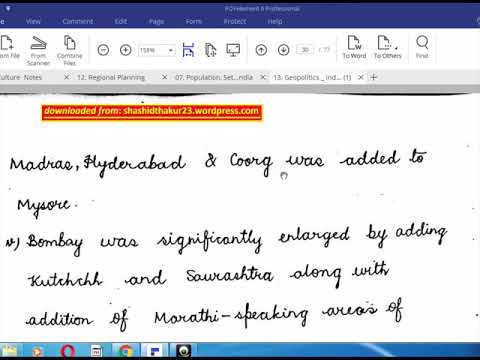 PDFelement 6 Professional
File
Home
View
Edit
Comment
Page
Forms
Protect
Share
Help
From File
From Scanner
158%
30
/ 77
To Word
To Others
Combine
Culture Notes
12. Regional Planning
07. Population, Set...ndia
13. Geopolitics _ Ind... (1)
downloaded from: shashidthakur23.wordpress.com
Madras, Hyderabad & Coorg was added to
Mysore.
v) Bombay was significantly enlarged by adding
Kutchchh and Saurashtra along with
addition of Marathi-speaking areas of